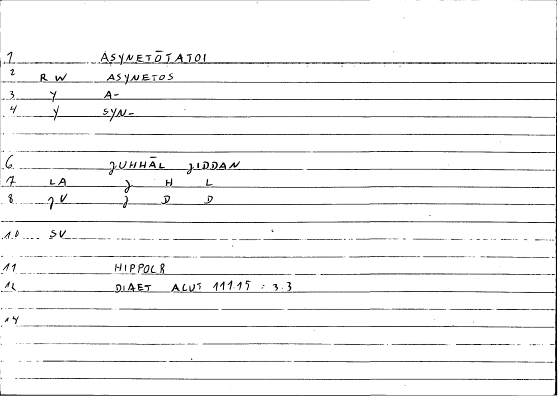 1 ASYNETŌTATOI
2 R W ASYNETOS
3 Y A-
4 Y SYN-
6 ȷUHHĀL ȷIDDAN
7 LA ȷ H L
8 ȷV ȷ D D
10 SV
11 HIPPOCR
12 DIAET ACUT 111.15 : 3.3
14